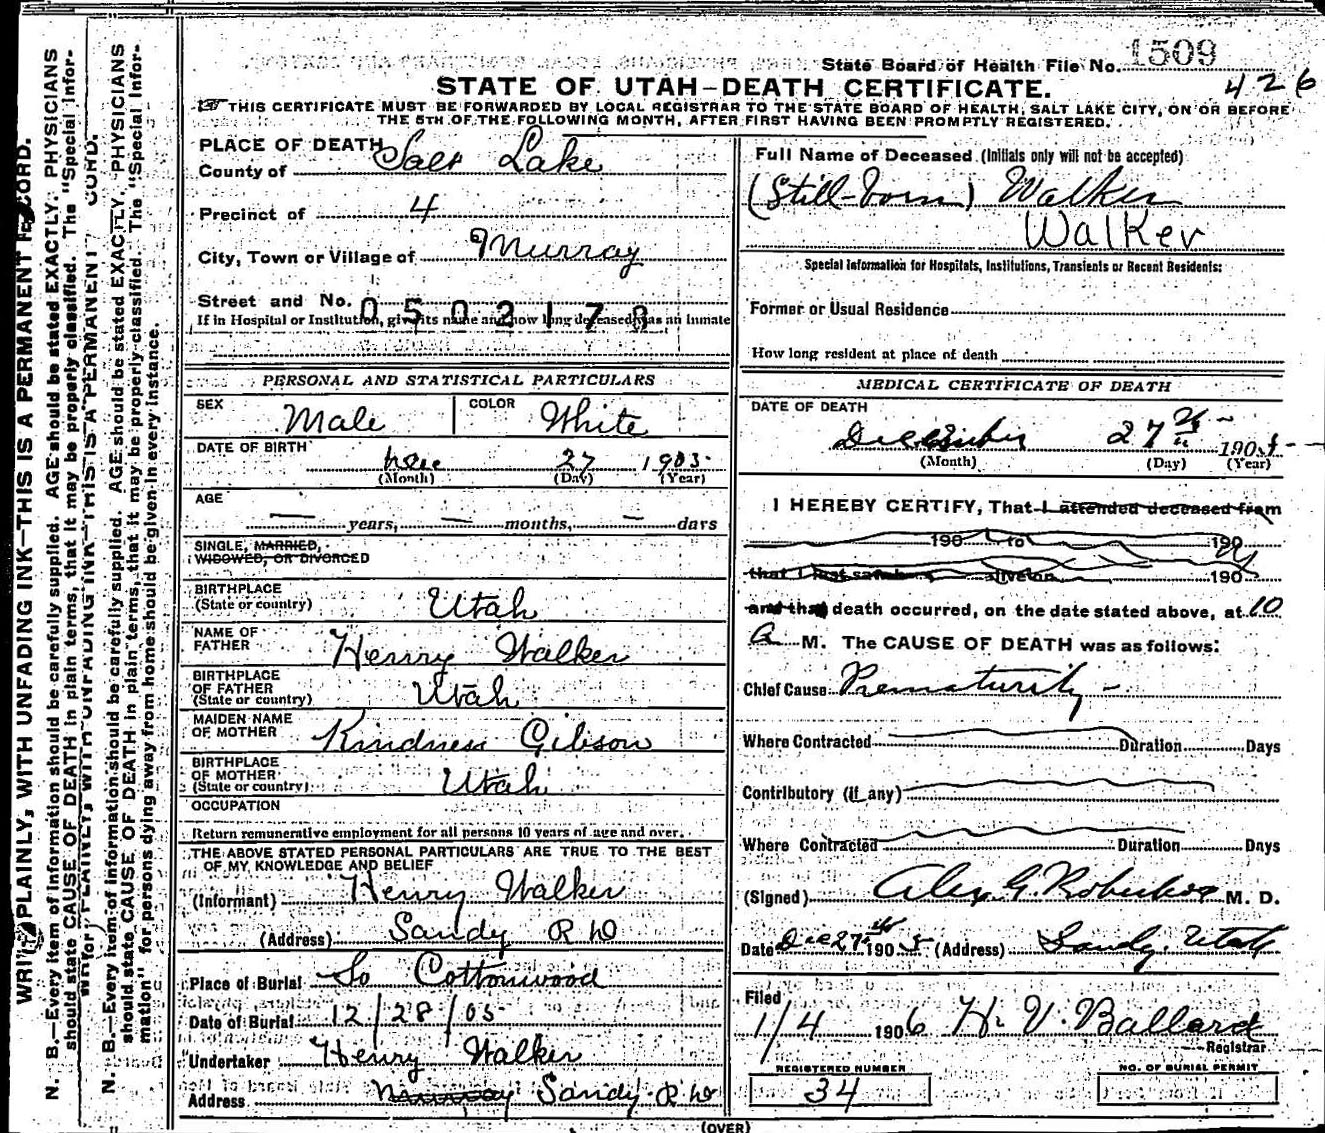 State Board of Health File No. 1509
STATE OF UTAH—DEATH CERTIFICATE.
426
THIS CERTIFICATE MUST BE FORWARDED BY LOCAL REGISTRAR TO THE STATE BOARD OF HEALTH, SALT LAKE CITY, ON OR BEFORE
THE 5TH OF THE FOLLOWING MONTH, AFTER FIRST HAVING BEEN PROMPTLY REGISTERED.
PLACE OF DEATH
County of Salt Lake
Precinct of 4
City, Town or Village of Murray
Street and No.
0502178
If in Hospital or Institution, give its name and how long deceased was an inmate
PERSONAL AND STATISTICAL PARTICULARS
SEX Male COLOR White
DATE OF BIRTH Dec 27 1905
(Month) (Day) (Year)
AGE
— years, — months, — days
SINGLE, MARRIED,
WIDOWED, OR DIVORCED
BIRTHPLACE
(State or country) Utah
NAME OF
FATHER Henry Walker
BIRTHPLACE
OF FATHER
(State or country) Utah
MAIDEN NAME
OF MOTHER Kindness Gibson
BIRTHPLACE
OF MOTHER
(State or country) Utah
OCCUPATION
Return remunerative employment for all persons 10 years of age and over.
THE ABOVE STATED PERSONAL PARTICULARS ARE TRUE TO THE BEST
OF MY KNOWLEDGE AND BELIEF
(Informant) Henry Walker
(Address) Sandy R D
Place of Burial So Cottonwood
Date of Burial 12/28/05
Undertaker Henry Walker
Address Murray Sandy R D
Full Name of Deceased (Initials only will not be accepted)
(Still-born) Walker
Walker
Special Information for Hospitals, Institutions, Transients or Recent Residents:
Former or Usual Residence
How long resident at place of death
MEDICAL CERTIFICATE OF DEATH
DATE OF DEATH
December 27th 1905
(Month) (Day) (Year)
I HEREBY CERTIFY, That I attended deceased from
190 to 190
that I last saw alive on 190
and that death occurred, on the date stated above, at 10
a M. The CAUSE OF DEATH was as follows:
Chief Cause Prematurity -
Where Contracted Duration Days
Contributory (if any)
Where Contracted Duration Days
(Signed) Alex. G. M. D.
Date Dec 27th 1905 (Address) Sandy, Utah
Filed
1/4 1906 H. V. Ballard
Registrar
REGISTERED NUMBER
34
NO. OF BURIAL PERMIT
(OVER)
WRITE PLAINLY, WITH UNFADING INK—THIS IS A PERMANENT RECORD.
N. B.—Every item of information should be carefully supplied. AGE should be stated EXACTLY. PHYSICIANS
should state CAUSE OF DEATH in plain terms, that it may be properly classified. The "Special Infor-
N. B.—Every item of information should be carefully supplied. AGE should be stated EXACTLY. PHYSICIANS
should state CAUSE OF DEATH in plain terms, that it may be properly classified. The "Special Infor-
mation" for persons dying away from home should be given in every instance.